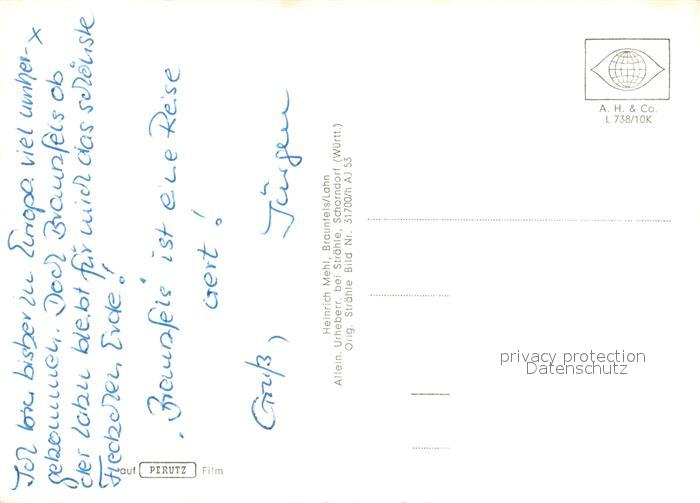 Ich bin bisher in Europa viel umher-
gekommen. Doch Braunfels ob
der Lahn bleibt für mich das schönste
Fleckchen Erde!
"Braunfels" ist eine Reise
wert!
Gruß, Jürgen
auf PERUTZ Film
Heinrich Mehl, Braunfels/Lahn
Allein. Urheberr. bei Strähle, Schorndorf (Württ.)
Orig. Strähle Bild Nr. 31700/h AJ 53
A. H. & Co.
L 738/10K
privacy protection
Datenschutz